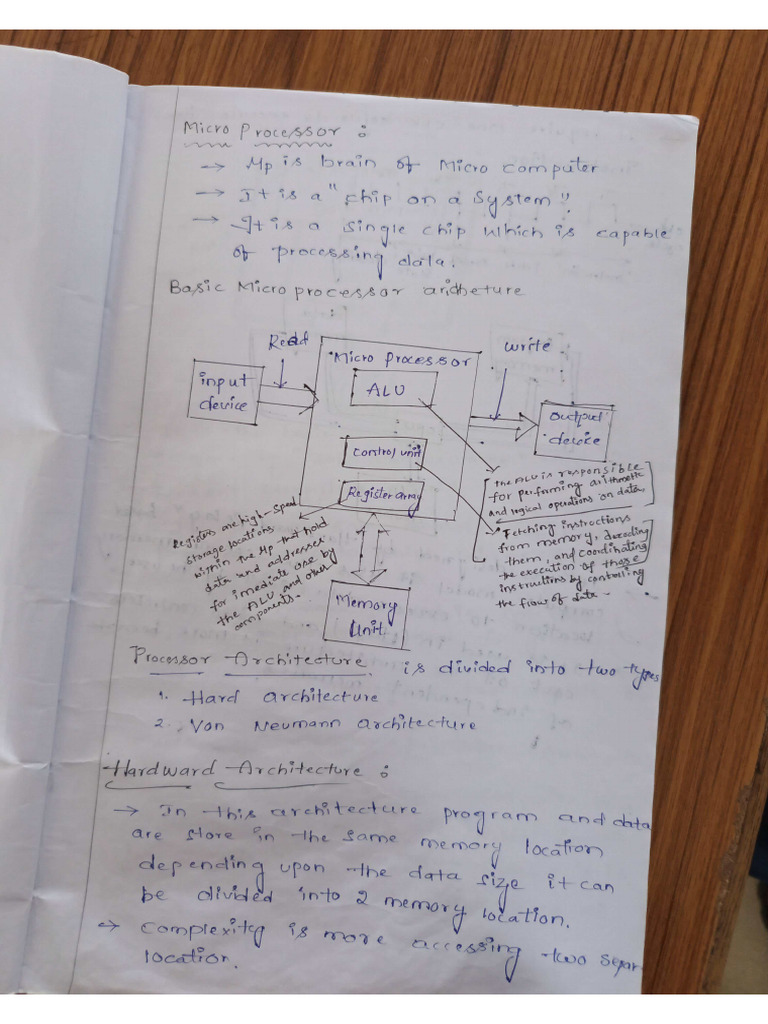 Micro Processor :
→ Mp is brain of Micro computer
→ It is a "chip on a System".
→ It is a single chip which is capable
of processing data.
Basic Microprocessor
Read
write
input
device
Micro Processor
ALU
Control unit
Register array
output
device
the ALU is responsible
for performing arithmetic
and logical operations on data
Fetching instructions
from memory, decoding
them, and coordinating
the execution of those
instructions by controlling
the flow of data.
Registers are high-speed
storage locations
within the Mp that hold
data and addresses
for imediate use by
the ALU and other
components.
Memory
Unit
Processor Architecture is divided into two types
1. Hard architecture
2. Von Neumann architecture
Hardward Architecture :
→ In this architecture program and data
are store in the same memory location
depending upon the data size it can
be divided into 2 memory location.
→ complexity is more accessing two separ
location.